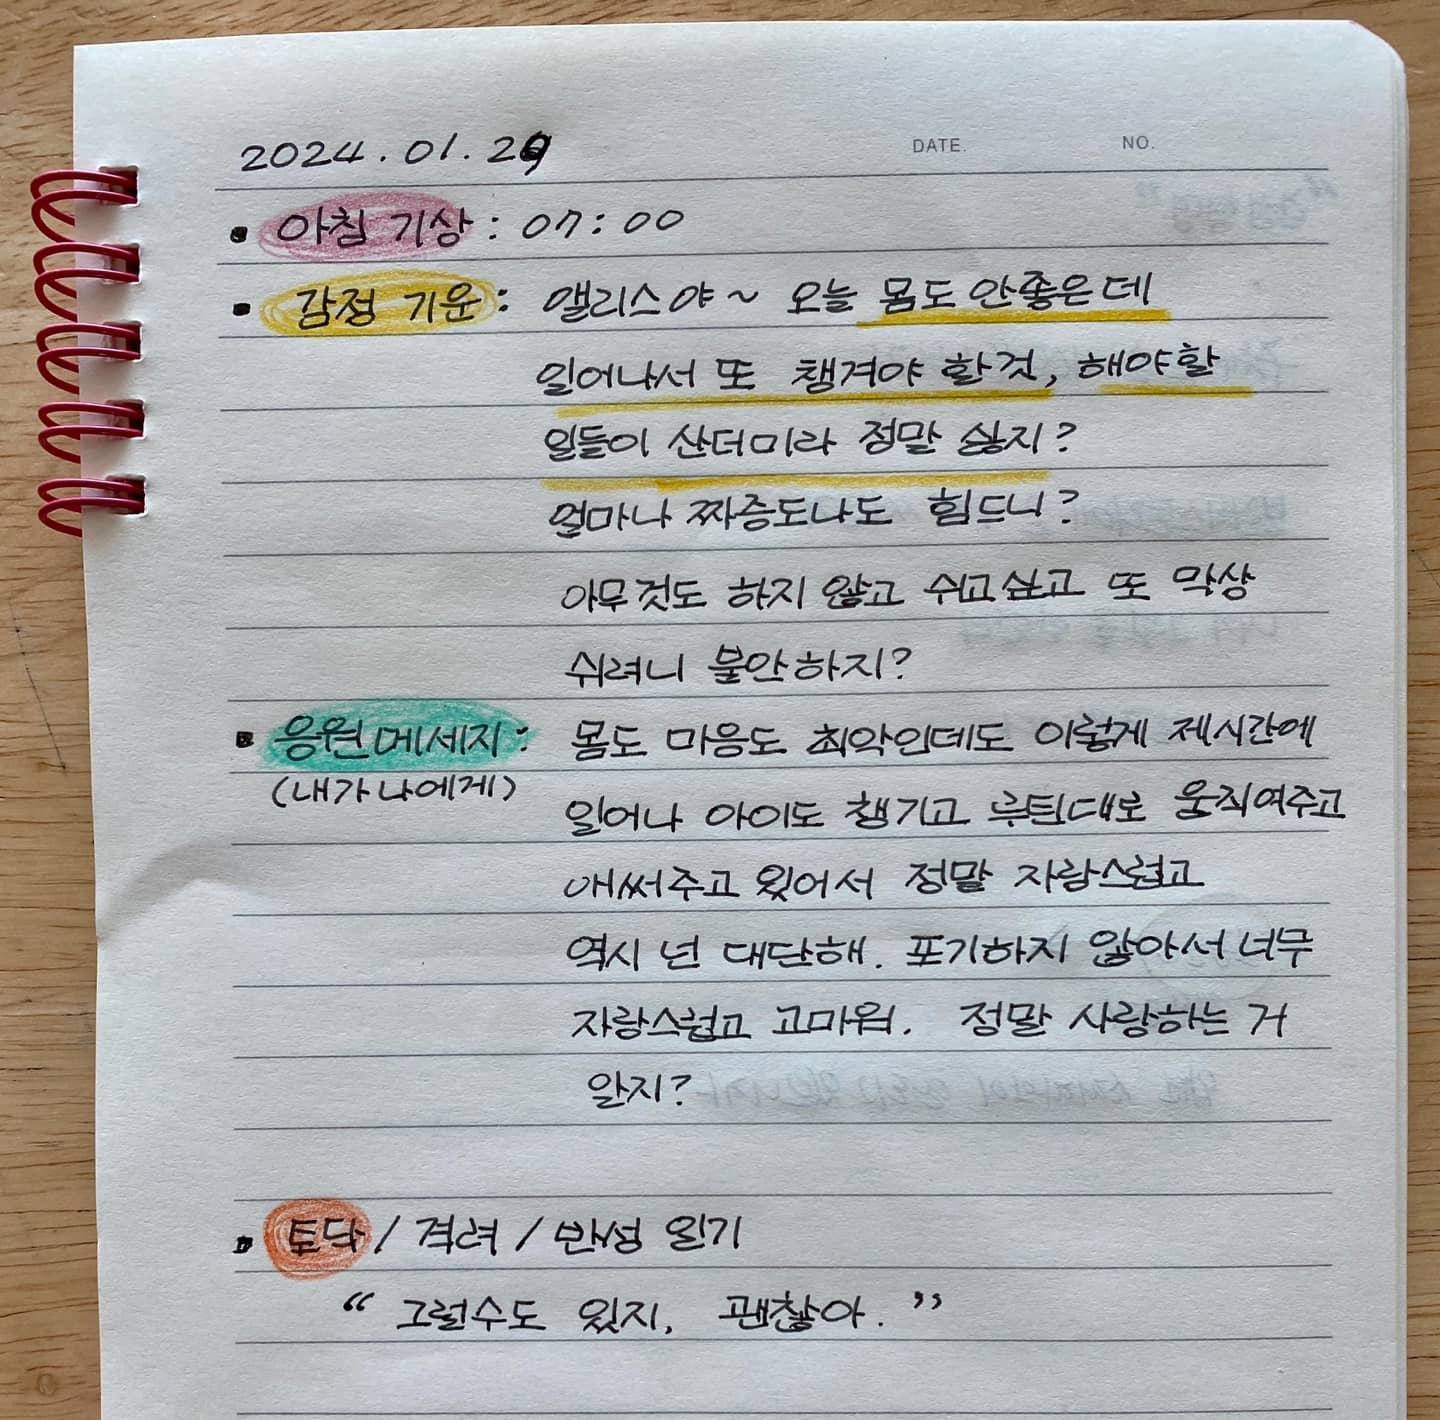 2024.01.29
DATE.
NO.
아침 기상 : 07:00
감정 기운 : 앨리스야~ 오늘 몸도 안좋은데
일어나서 또 챙겨야 할것, 해야할
일들이 산더미라 정말 싫지?
얼마나 짜증도나도 힘드니?
아무것도 하지 않고 쉬고싶고 또 막상
쉬려니 불안하지?
응원메세지 : 몸도 마음도 최악인데도 이렇게 제시간에
(내가 나에게)
일어나 아이도 챙기고 루틴대로 움직여주고
애써주고 있어서 정말 자랑스럽고
역시 넌 대단해. 포기하지 않아서 너무
자랑스럽고 고마워. 정말 사랑하는 거
알지?
토닥 / 격려 / 반성 일기
“ 그럴수도 있지, 괜찮아. ”